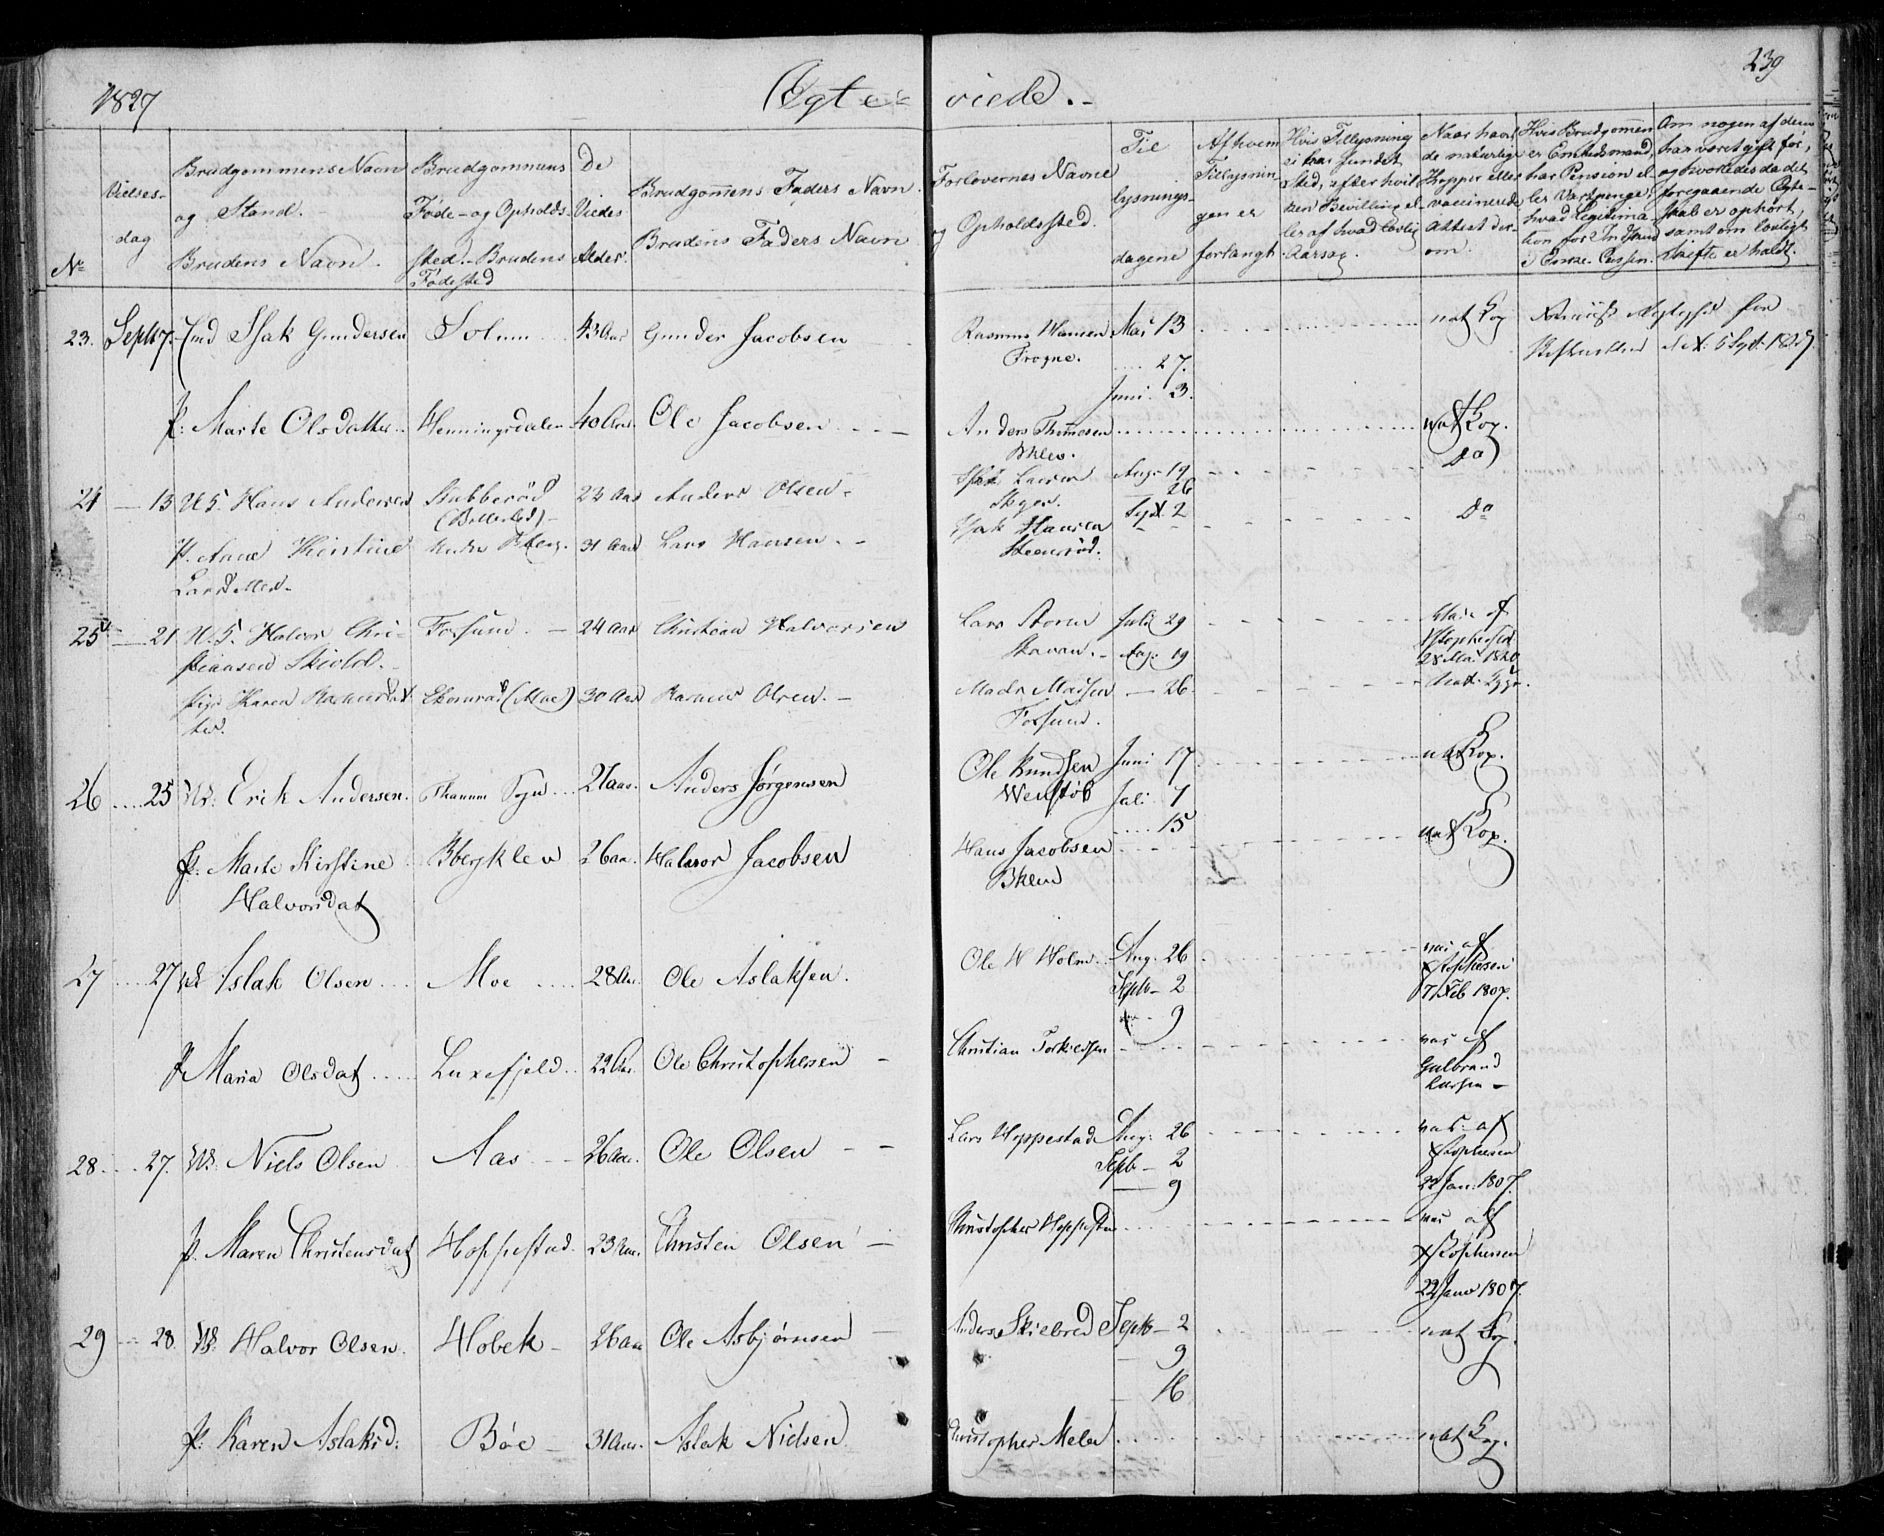 1827
Ægte-viede.
239
No
Vielses-dag
Brudgommens Navn og Stand.
Brudens Navn.
Brudgommens Føde- og Opholds-sted. Brudens Fødested
De Viedes Alder.
Brudgomens Faders Navn.
Brudens Faders Navn
Forlovernes Navne og Opholdssted.
Til lysnings-dagene
Af hvem Tillysnin gen er forlangt
Hvis Tillysning ei har fundet Sted, efter hvil ken Bevilling el ler af hvad lovlig Aarsag.
Naar havt de naturlige Kopper eller vaccinerede Attest der-om.
Hvis Brudgommen er Embedsmand, har Pension el ler Vartpenge, hvad Legitima-tion for Indskud i Enke-Cassen.
Om nogen af dem har været gift før, og hvorledes da det foregaaende Ægte-skab er ophørt, samt om lovligt Skifte er holdt.
23. Septb 7. Isak Gundersen Solum 43 Aar Gunder Jacobsen Rasmus Hansen Frogne. Mai 13 nat Kop
27.
Juni 3.
P: Marte Olsdatter Henningsdalen 40 Aar. Ole Jacobsen Anders Thomesen Bklev. nat Kop.
24 13 U.S. Hans Andersen Stubberød 23 Aar Anders Olsen Aug. 19 Do
26
Sept 2
P. Anne Kirstine Larsdatter 31 Aar Lars Hansen Isak Hansen Do
25 21 U.S. Halvor Christiansen Skiold. Fossum 24 Aar Christian Halvorsen Lars Skavan. Juli 29
28 Mai 1820
Aug. 19
26.
Pige Karen 30 Aar Rasmus Olsen Mads Madsen Fossum.
26 25 Erik Andersen. Sogn 27 aar. Anders Jørgensen Ole Knudsen Wenstøb Juni 17 nat Kop.
Juli 1
15
P: Marte Kirstine Halvorsdat Bbergklev 26 aa. Halvor Jacobsen Hans Jacobsen Bklev nat Kop.
27 27 Aslak Olsen Moe 28 Aar. Ole Aslaksen. Ole W Holm Aug. 26 vac af Xstophersen 7 Feb 1807.
Septb 2
9
P Maria Olsdat Luxefjeld 22 Aar. Ole Christophersen Christian Torkiessen vac af Gulbrand Larsen
28 27. Niels Olsen Aas 26 Aar. Ole Olsen Lars Hoppestad Aug. 26 vac. af Xstophersen 22 Jan: 1807.
Septb 2
9
P. Maren Christensdat Hoppestad 23 Aar. Christen Olsen Christopher Hoppestad vac af Xstophersen 22 Janv 1807.
29 28 Halvor Olsen. Hobek 26 aar Ole Asbjørnsen Anders Skilbred Septb 2 nat Kop.
9
16
P: Karen Aslaksd: Bøe 31 Aar. Aslak Nielsen Christopher Melev nat Kop.